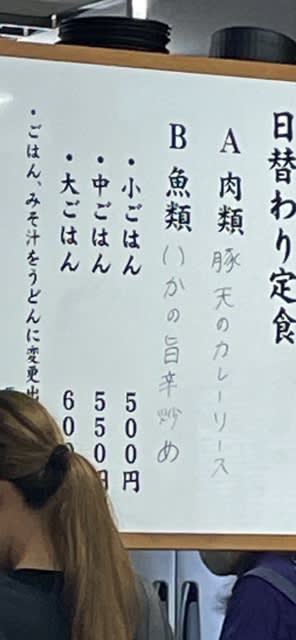 日替わり定食
A 肉類 豚天のカレーソース
B 魚類 いかの旨辛炒め
・小ごはん 500円
・中ごはん 550円
・大ごはん 600
・ごはん、みそ汁をうどんに変更出